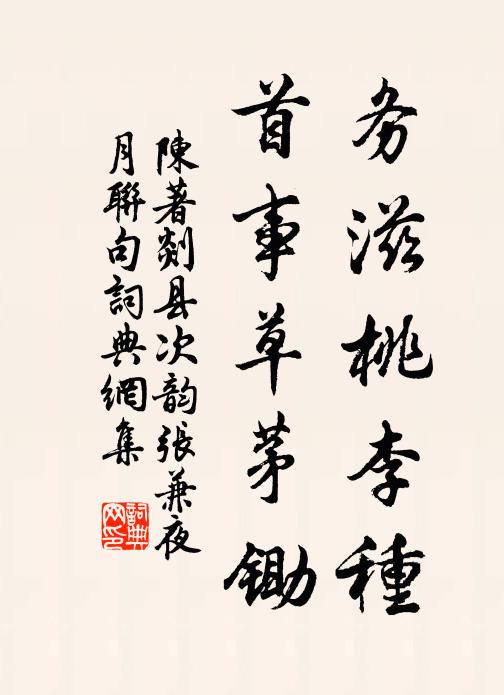 务滋桃李種
首事草茅鋤
陳著剡县次韵張兼夜
月聯句詞典網集
詞典
网印